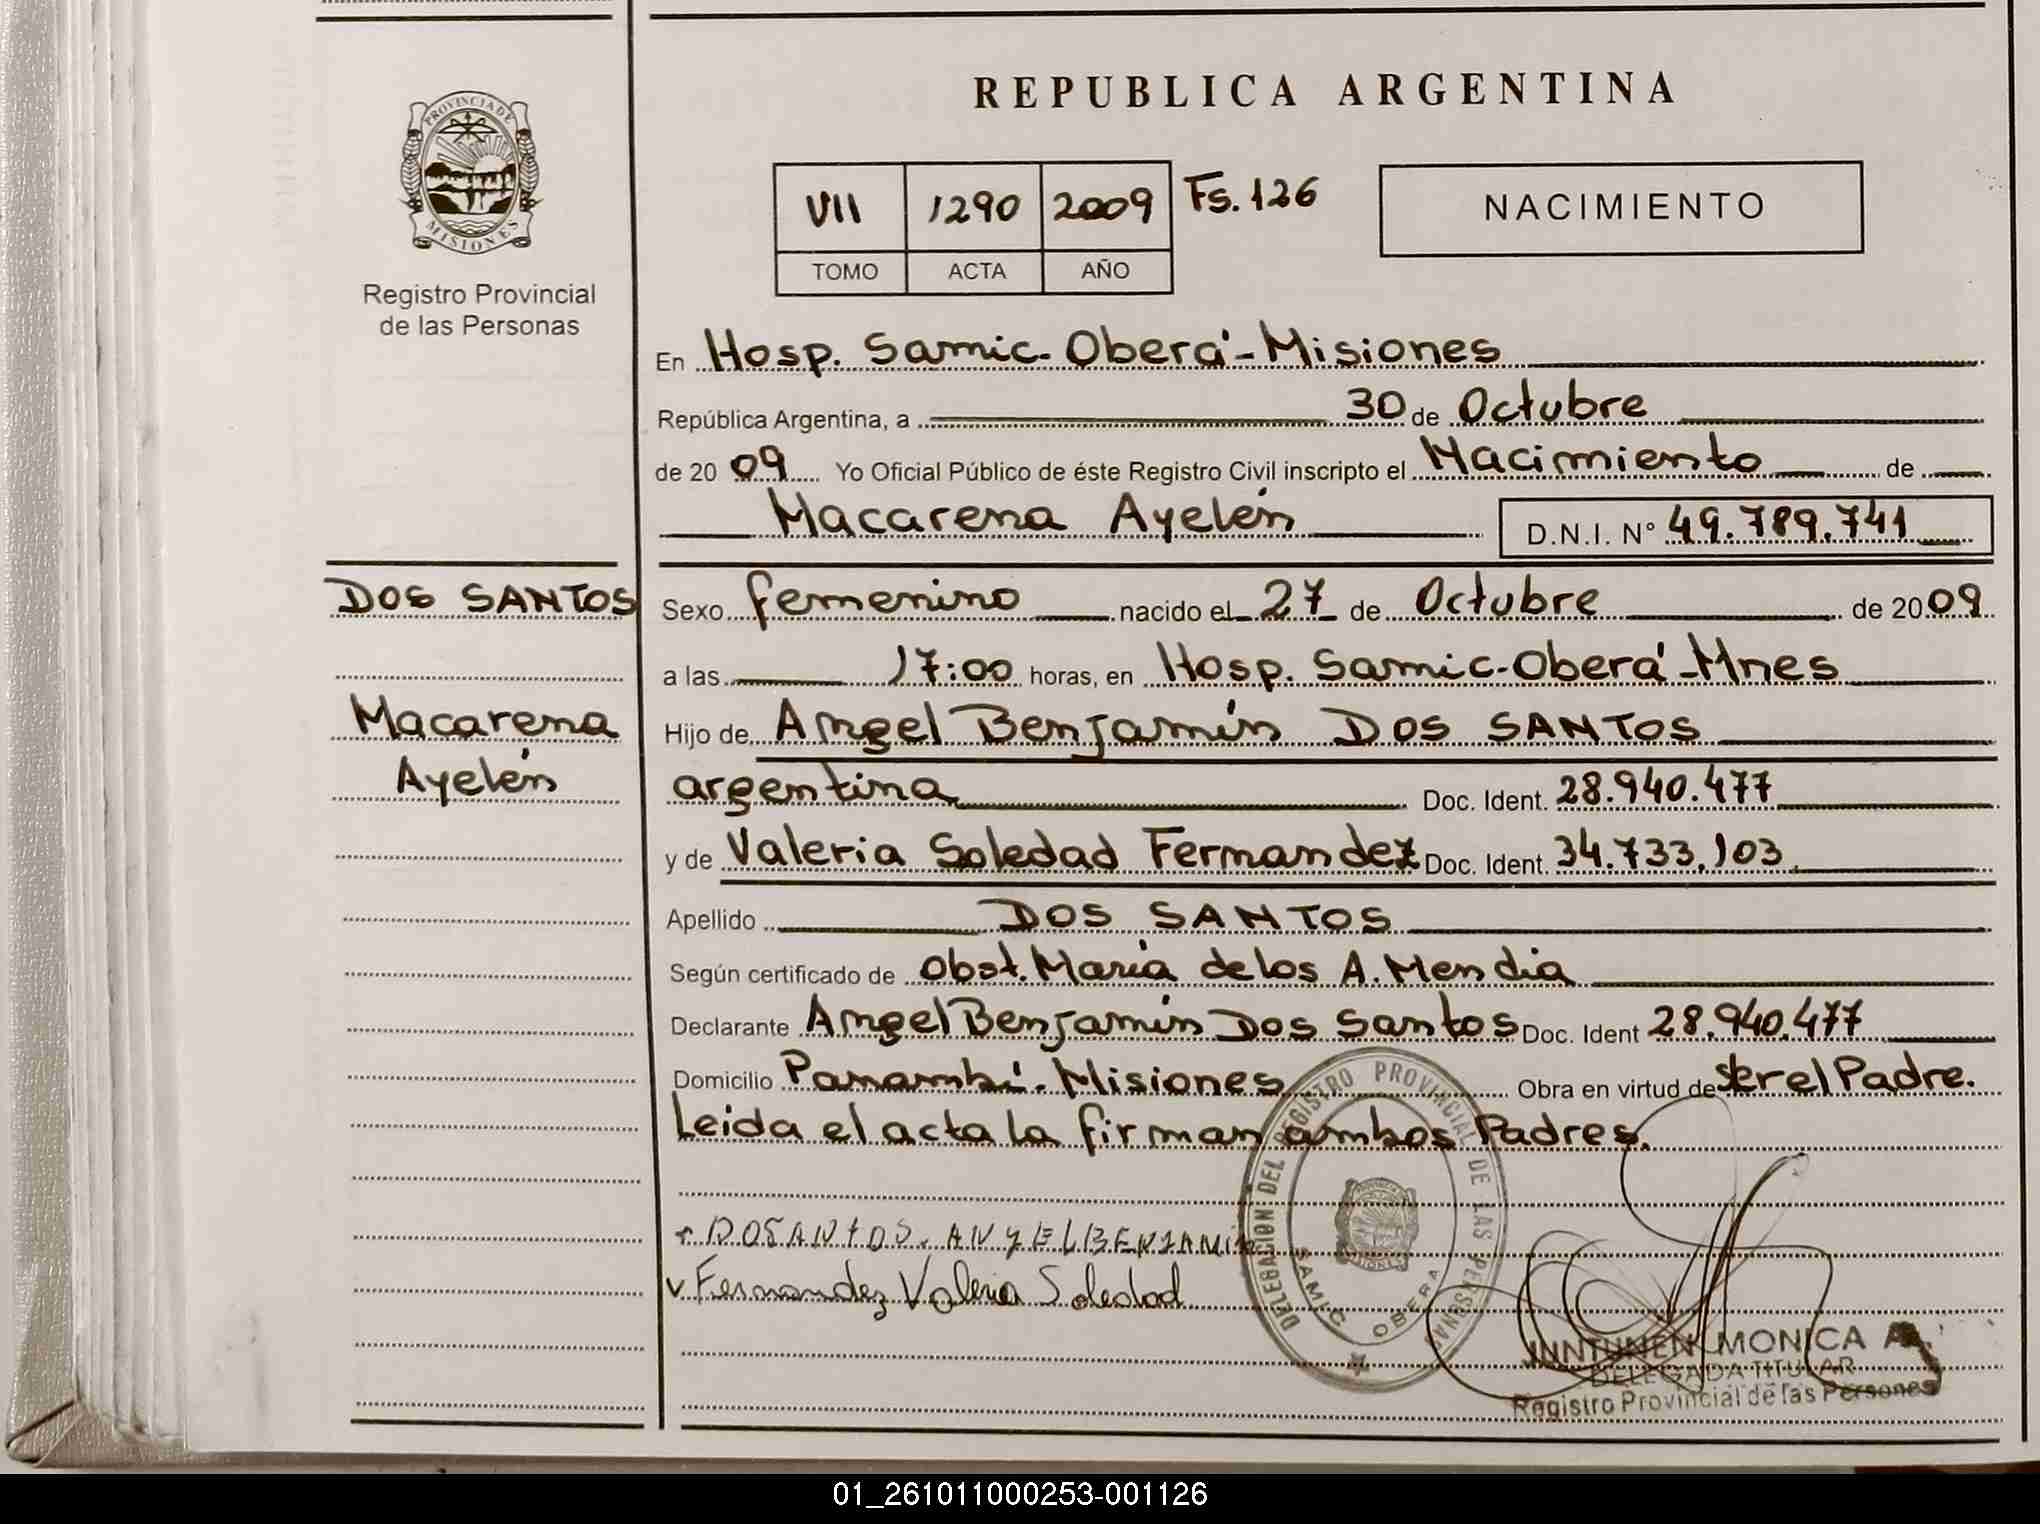 REPUBLICA ARGENTINA
PROVINCIA DE
MISIONES
Registro Provincial
de las Personas
VII 1290 2009 Fs. 126
TOMO ACTA AÑO
NACIMIENTO
En Hosp. Samic-Oberá-Misiones
República Argentina, a 30 de Octubre
de 2009 Yo Oficial Público de éste Registro Civil inscripto el Nacimiento de
Macarena Ayelén D.N.I. N° 49.789.741
DOS SANTOS
Macarena
Ayelén
Sexo femenino nacido el 27 de Octubre de 2009
a las 17:00 horas, en Hosp. Samic-Oberá-Mnes
Hijo de Angel Benjamín DOS SANTOS
argentina Doc. Ident. 28.940.477
y de Valeria Soledad Fernandez Doc. Ident. 34.733.103
Apellido DOS SANTOS
Según certificado de Obst. María de los A. Mendia
Declarante Angel Benjamín Dos Santos Doc. Ident 28.940.477
Domicilio Panambí-Misiones Obra en virtud de ser el Padre.
Leida el acta la firman ambos Padres.
DOSANTOS. ANYELBENJAMIN
Fernandez Valeria Soledad
DELEGACION DEL REGISTRO PROVINCIAL DE LAS PERSONAS
SAMIC OBERA
MONICA A.
DELEGADA TITULAR
Registro Provincial de las Personas
01_261011000253-001126